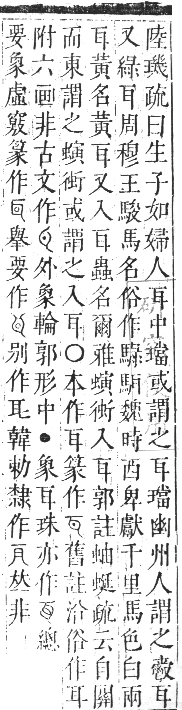 陸璣疏曰生子如婦人耳中璫或謂之耳璫幽州人謂之爵耳
又綠耳周穆王駿馬名俗作騄駬魏時西卑獻千里馬色白兩
耳黃名黃耳又入耳蟲名爾雅螾衝入耳郭註蚰蜒疏云自關
而東謂之螾衝或謂之入耳○本作耳篆作舊註沿俗作耳
附六画非古文作外象輪郭形中●象耳珠亦作總
要象虛竅篆作舉要作别作耳韓勅隸作𠀌非